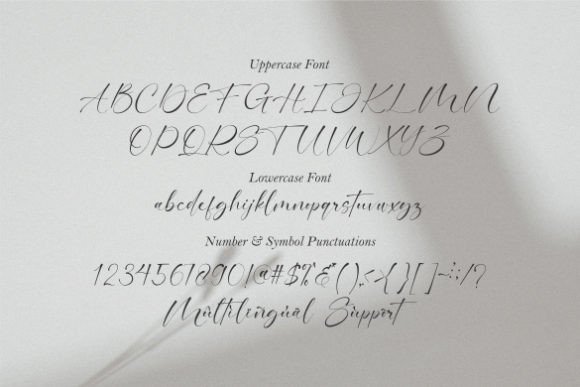 Uppercase Font
ABCDEFGHIJKLMN
OPQRSTUVWXYZ
Lowercase Font
abcdefghijklmnopqrstuvwxyz
Number & Symbol Punctuations
1234567890!@#$%&*(),.<>{}[]-~:;/?
Multilingual Support